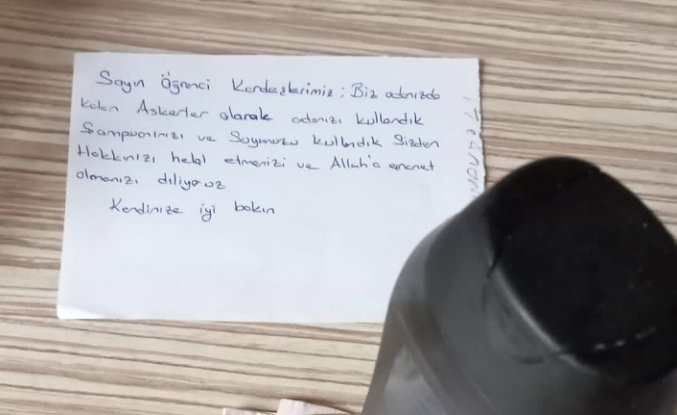 Sayın Öğrenci Kardeşlerimiz: Biz odanızda
kalan Askerler olarak odanızı kullandık
Şampuanınızı ve Suyunuzu kullandık Sizden
Hakkınızı helal etmenizi ve Allah'a emanet
olmanızı diliyoruz
Kendinize iyi bakın